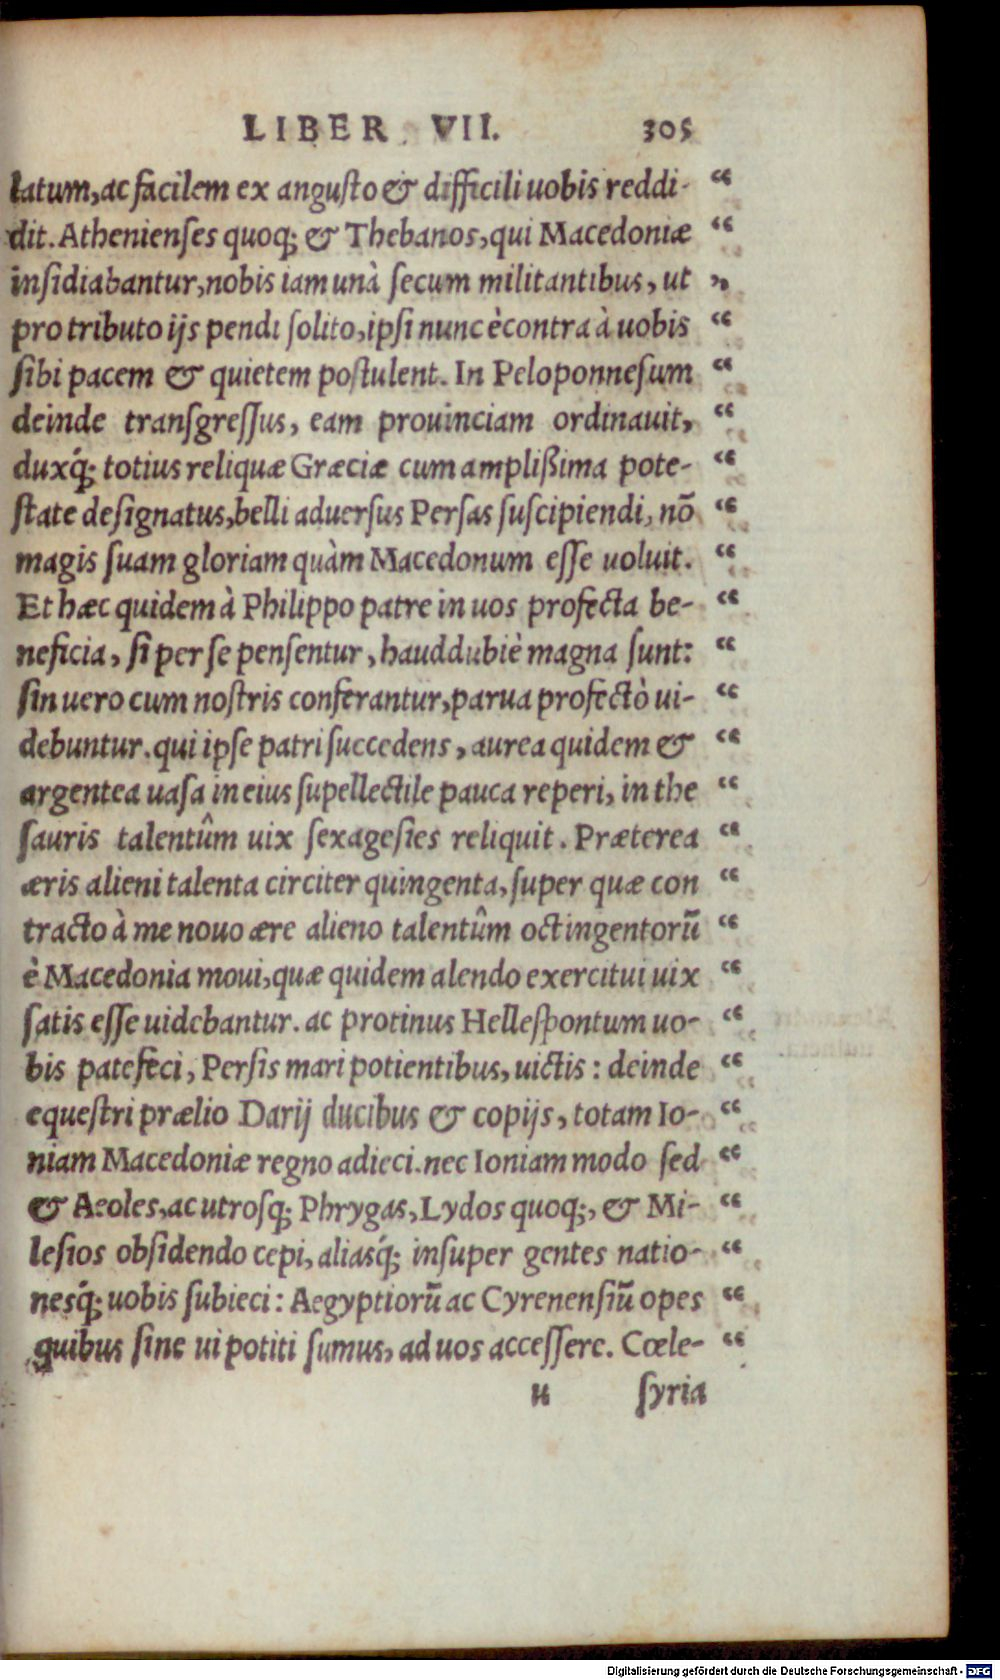 LIBER VII. 305
latum, ac facilem ex angusto & difficili uobis reddi- “
dit. Athenienses quoq; & Thebanos, qui Macedoniæ “
insidiabantur, nobis iam unà secum militantibus, ut ”
pro tributo ijs pendi solito, ipsi nunc è contra à uobis “
sibi pacem & quietem postulent. In Peloponnesum “
deinde transgressus, eam prouinciam ordinauit, “
duxq́; totius reliquæ Græciæ cum amplißima pote- “
state designatus, belli aduersus Persas suscipiendi, nō “
magis suam gloriam quàm Macedonum esse uoluit. “
Et hæc quidem à Philippo patre in uos profecta be- “
neficia, si per se pensentur, hauddubiè magna sunt: “
sin uero cum nostris conferantur, parua profectò ui- “
debuntur. qui ipse patri succedens, aurea quidem & “
argentea uasa in eius supellectile pauca reperi, in the “
sauris talentûm uix sexagesies reliquit. Præterea “
æris alieni talenta circiter quingenta, super quæ con “
tracto à me nouo ære alieno talentûm octingentorū “
è Macedonia moui, quæ quidem alendo exercitui uix “
satis esse uidebantur. ac protinus Hellespontum uo- “
bis patefeci, Persis mari potientibus, uictis: deinde “
equestri prælio Darij ducibus & copijs, totam Io- “
niam Macedoniæ regno adieci. nec Ioniam modo sed “
& Aeoles, ac utrosq; Phrygas, Lydos quoq;, & Mi- “
lesios obsidendo cepi, aliasq́; insuper gentes natio- “
nesq́; uobis subieci: Aegyptiorū ac Cyrenensiū opes “
quibus sine ui potiti sumus, ad uos accessere. Cœle- “
u syria
Digitalisierung gefördert durch die Deutsche Forschungsgemeinschaft - DFG